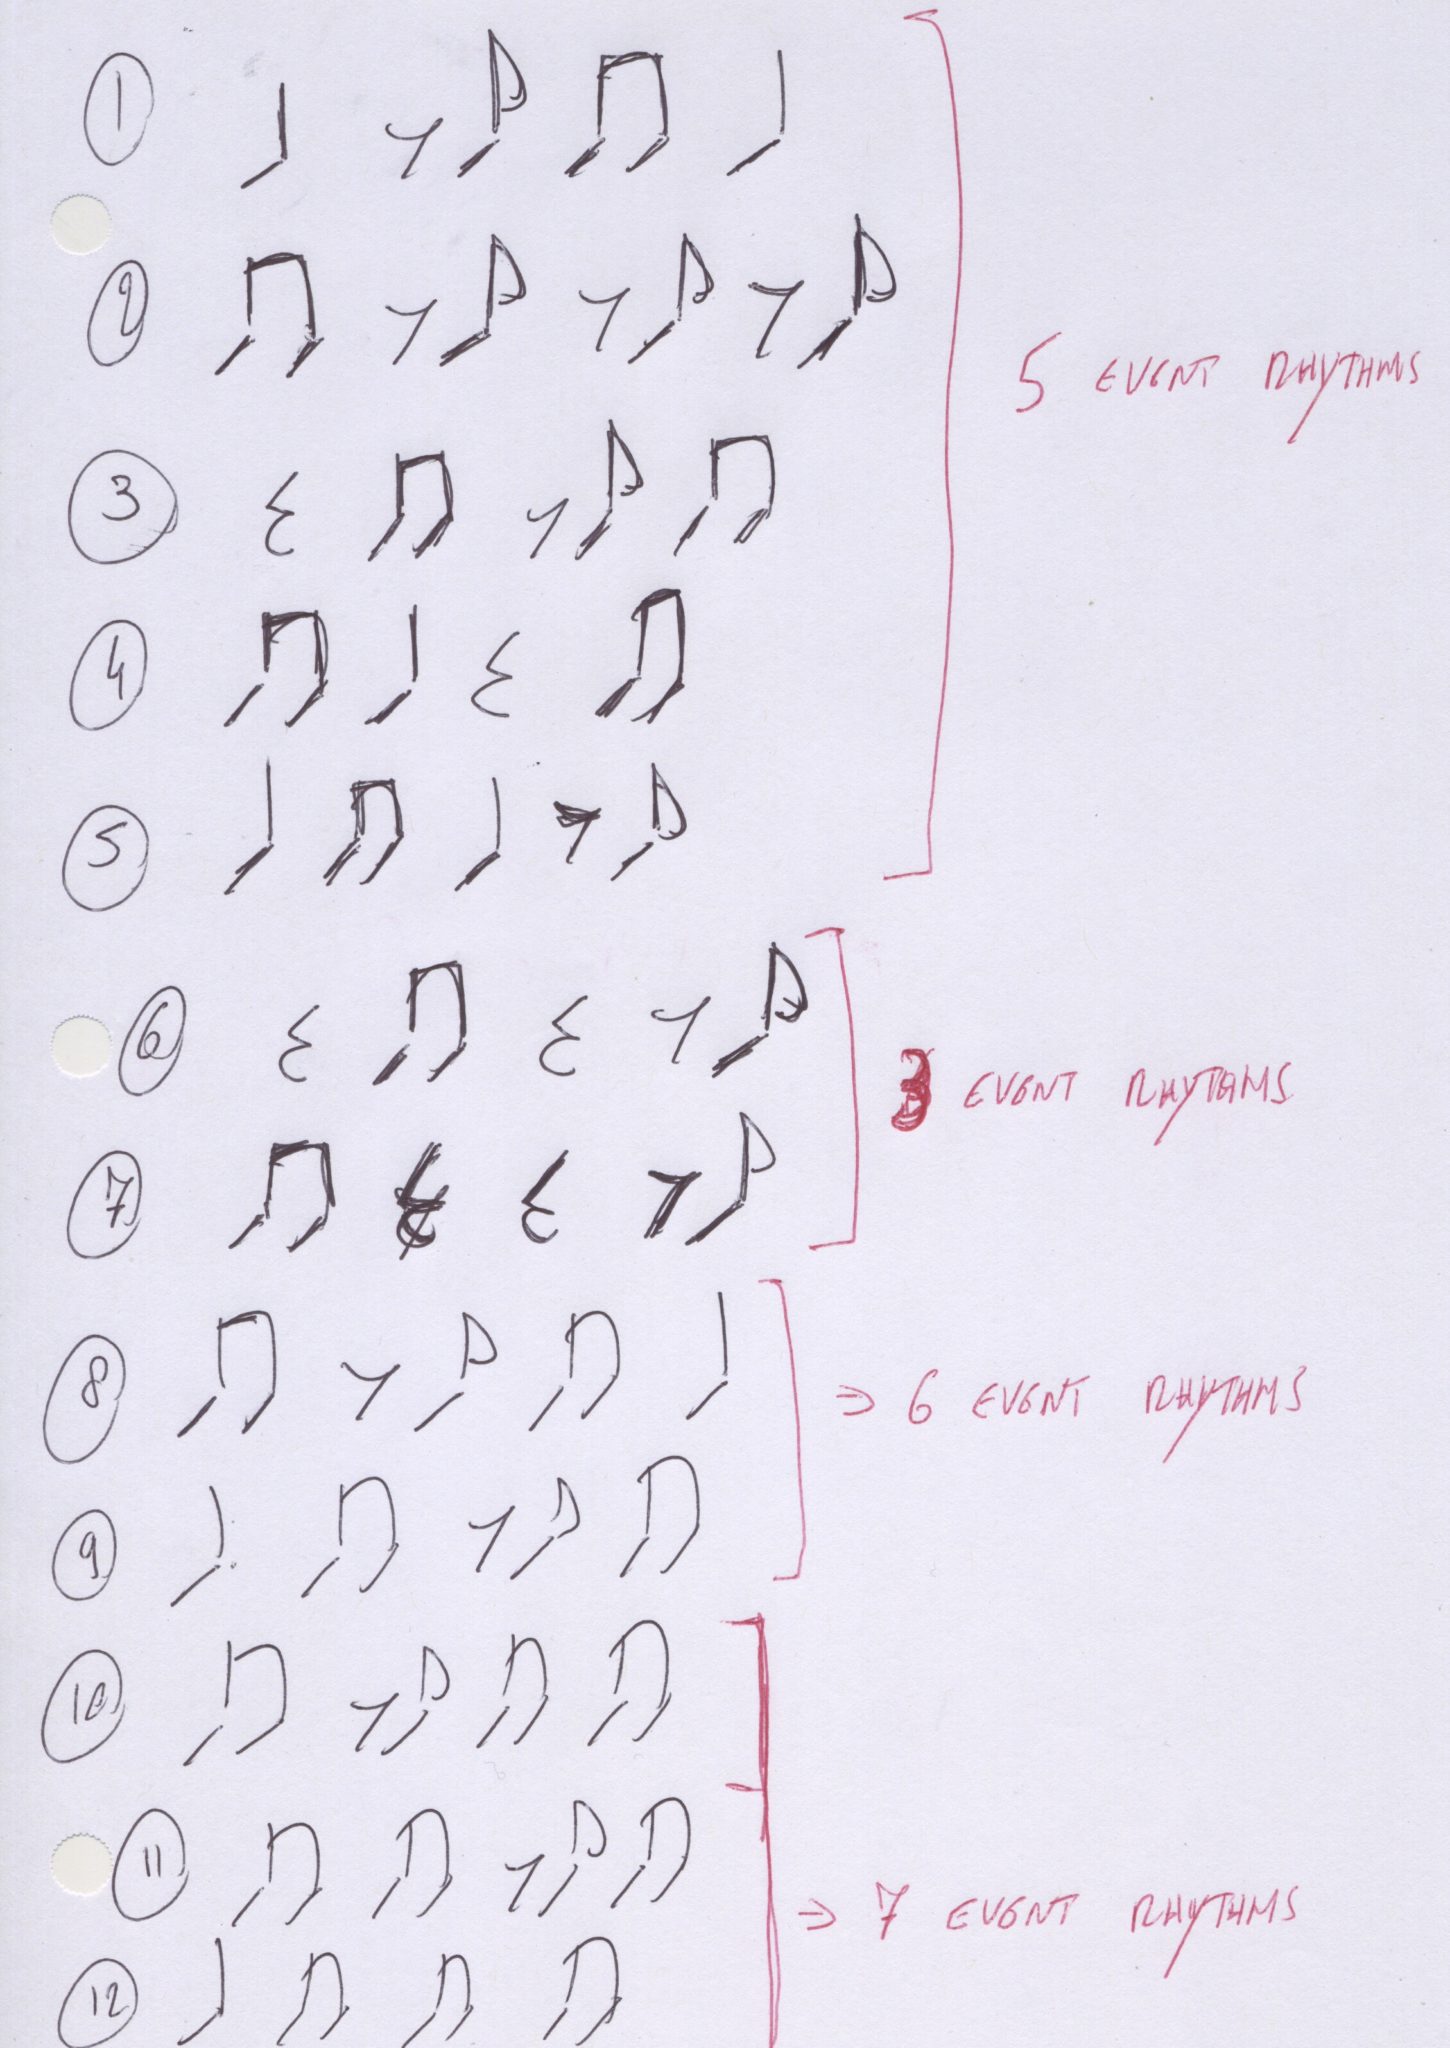 1
2
5 EVENT RHYTHMS
3
4
5
6
3 EVENT RHYTHMS
7
8
⇒ 6 EVENT RHYTHMS
9
10
11
⇒ 7 EVENT RHYTHMS
12